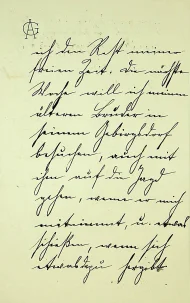 AG
ich den Rest meiner
freien Zeit. Die nächste
Woche will ich meinen
älteren Bruder in
seinem Gebirgsdorf
besuchen, auch mit
ihm auf die Jagd
gehen, wenn er mich
mitnimmt, u. etwas
schießen, wenn sich
etwas dazu hergibt